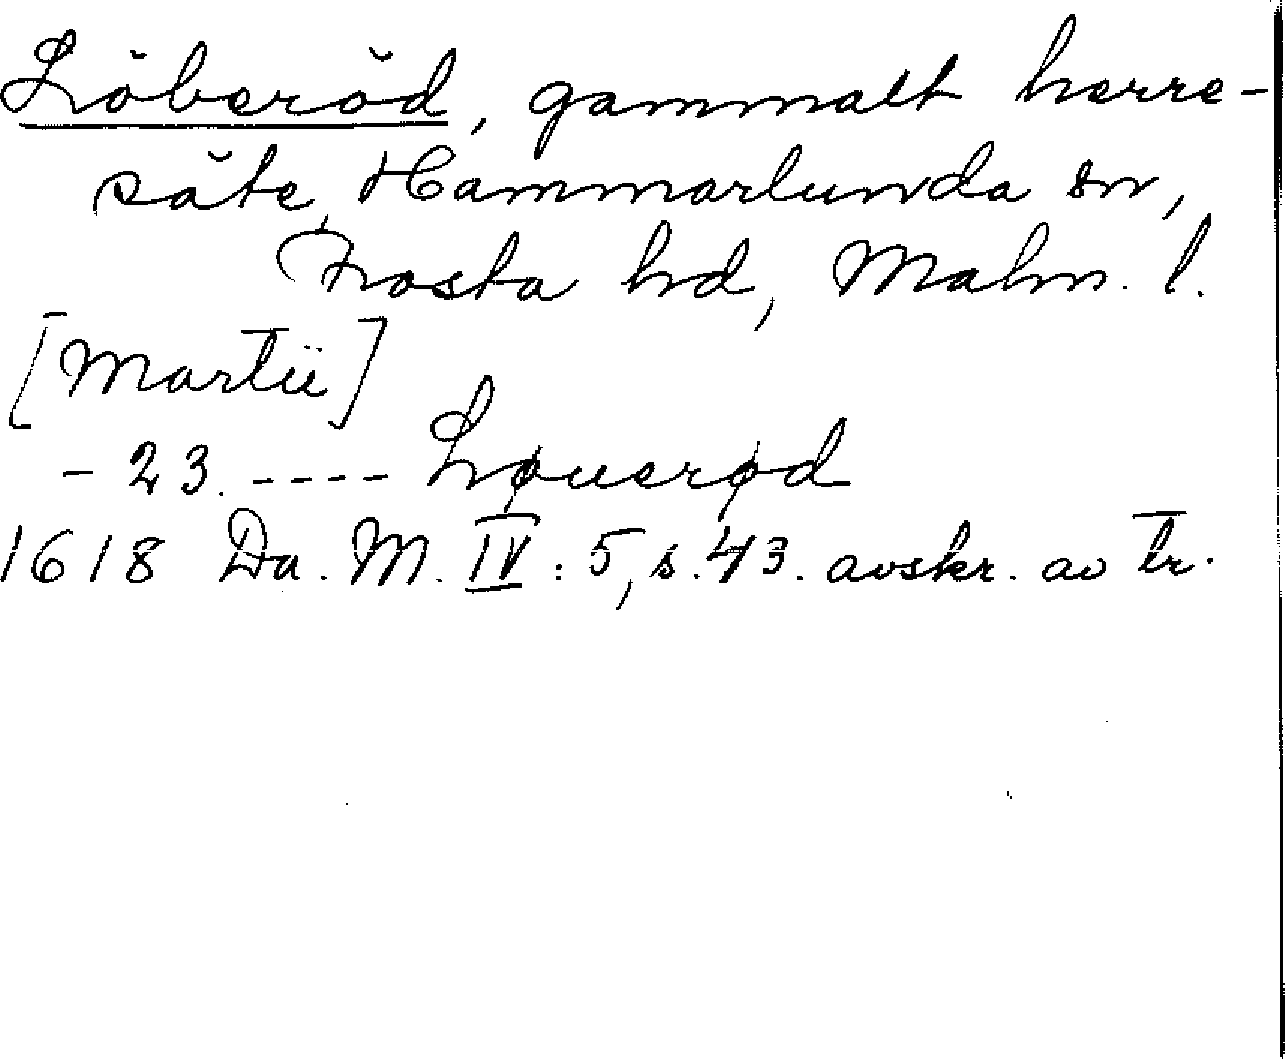 Löberöd, gammalt herre-
säte, Hammarlunda sn,
Frosta hd, Malm. l.
[Martii]
- 23. ---- Løuerød
1618 Da. M. IV: 5, s. 43. avskr. av tr.